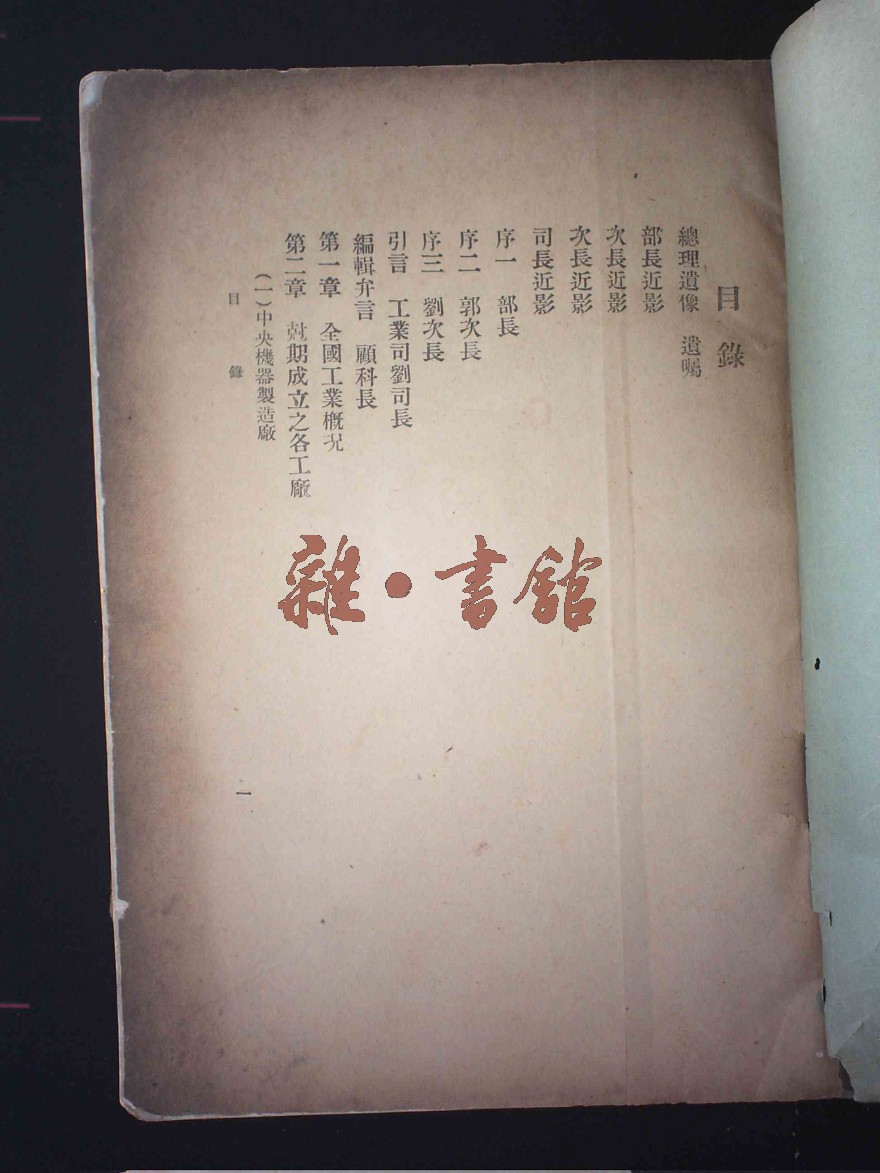 目錄
總理遺像 遺囑
部長近影
次長近影
次長近影
司長近影
序一 部長
序二 郭次長
序三 劉次長
引言 工業司劉司長
編輯弁言 顧科長
第一章 全國工業概況
第二章 尅期成立之各工廠
(一)中央機器製造廠
目錄
一
雜·書館